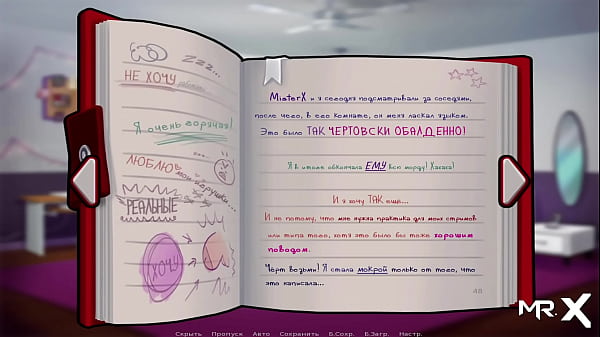 Zzz...
НЕ ХОЧУ работать...
Я очень горячая!
ЛЮБЛЮ
мои игрушки...
РЕАЛЬНЫЕ
ХОЧУ
MisterX и я сегодня подсматривали за соседями,
после чего, в его комнате, он меня ласкал языком.
Это было ТАК ЧЕРТОВСКИ ОБАЛДЕННО!
Я в итоге обкончала ЕМУ всю морду! Хахаха!
И я хочу ТАК еще...
И не потому, что мне нужна практика для моих стримов
или типа того, хотя это было бы тоже хорошим
поводом.
Чёрт возьми! Я стала мокрой только от того, что
это написала...
48
MR. X
Скрыть Пропуск Авто Сохранить Б.Сохр. Б.Загр. Настр.